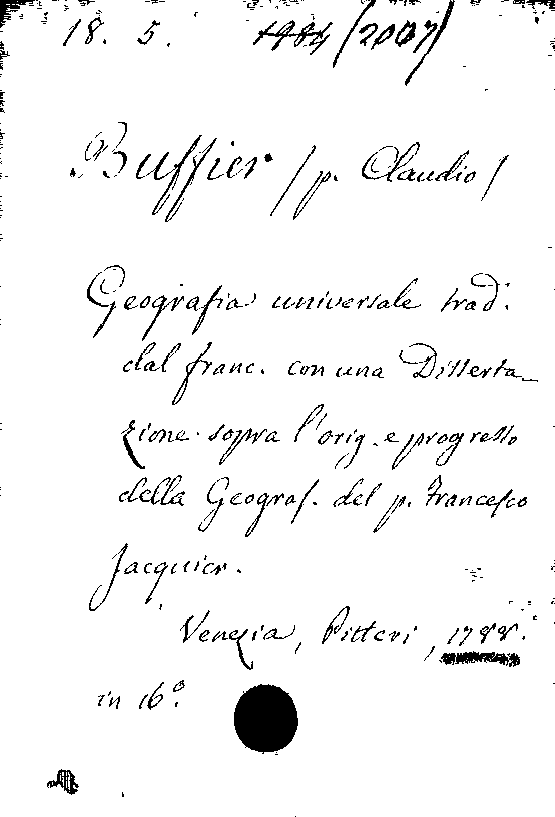 18. 5. 1984 (2007)
Buffier / p. Claudio /
Geografia universale trad.
dal franc. con una Disserta-
zione sopra l'orig. e progresso
della Geograf. del p. Francesco
Jacquier.
Venezia, Pitteri, 1788.
in 16º.